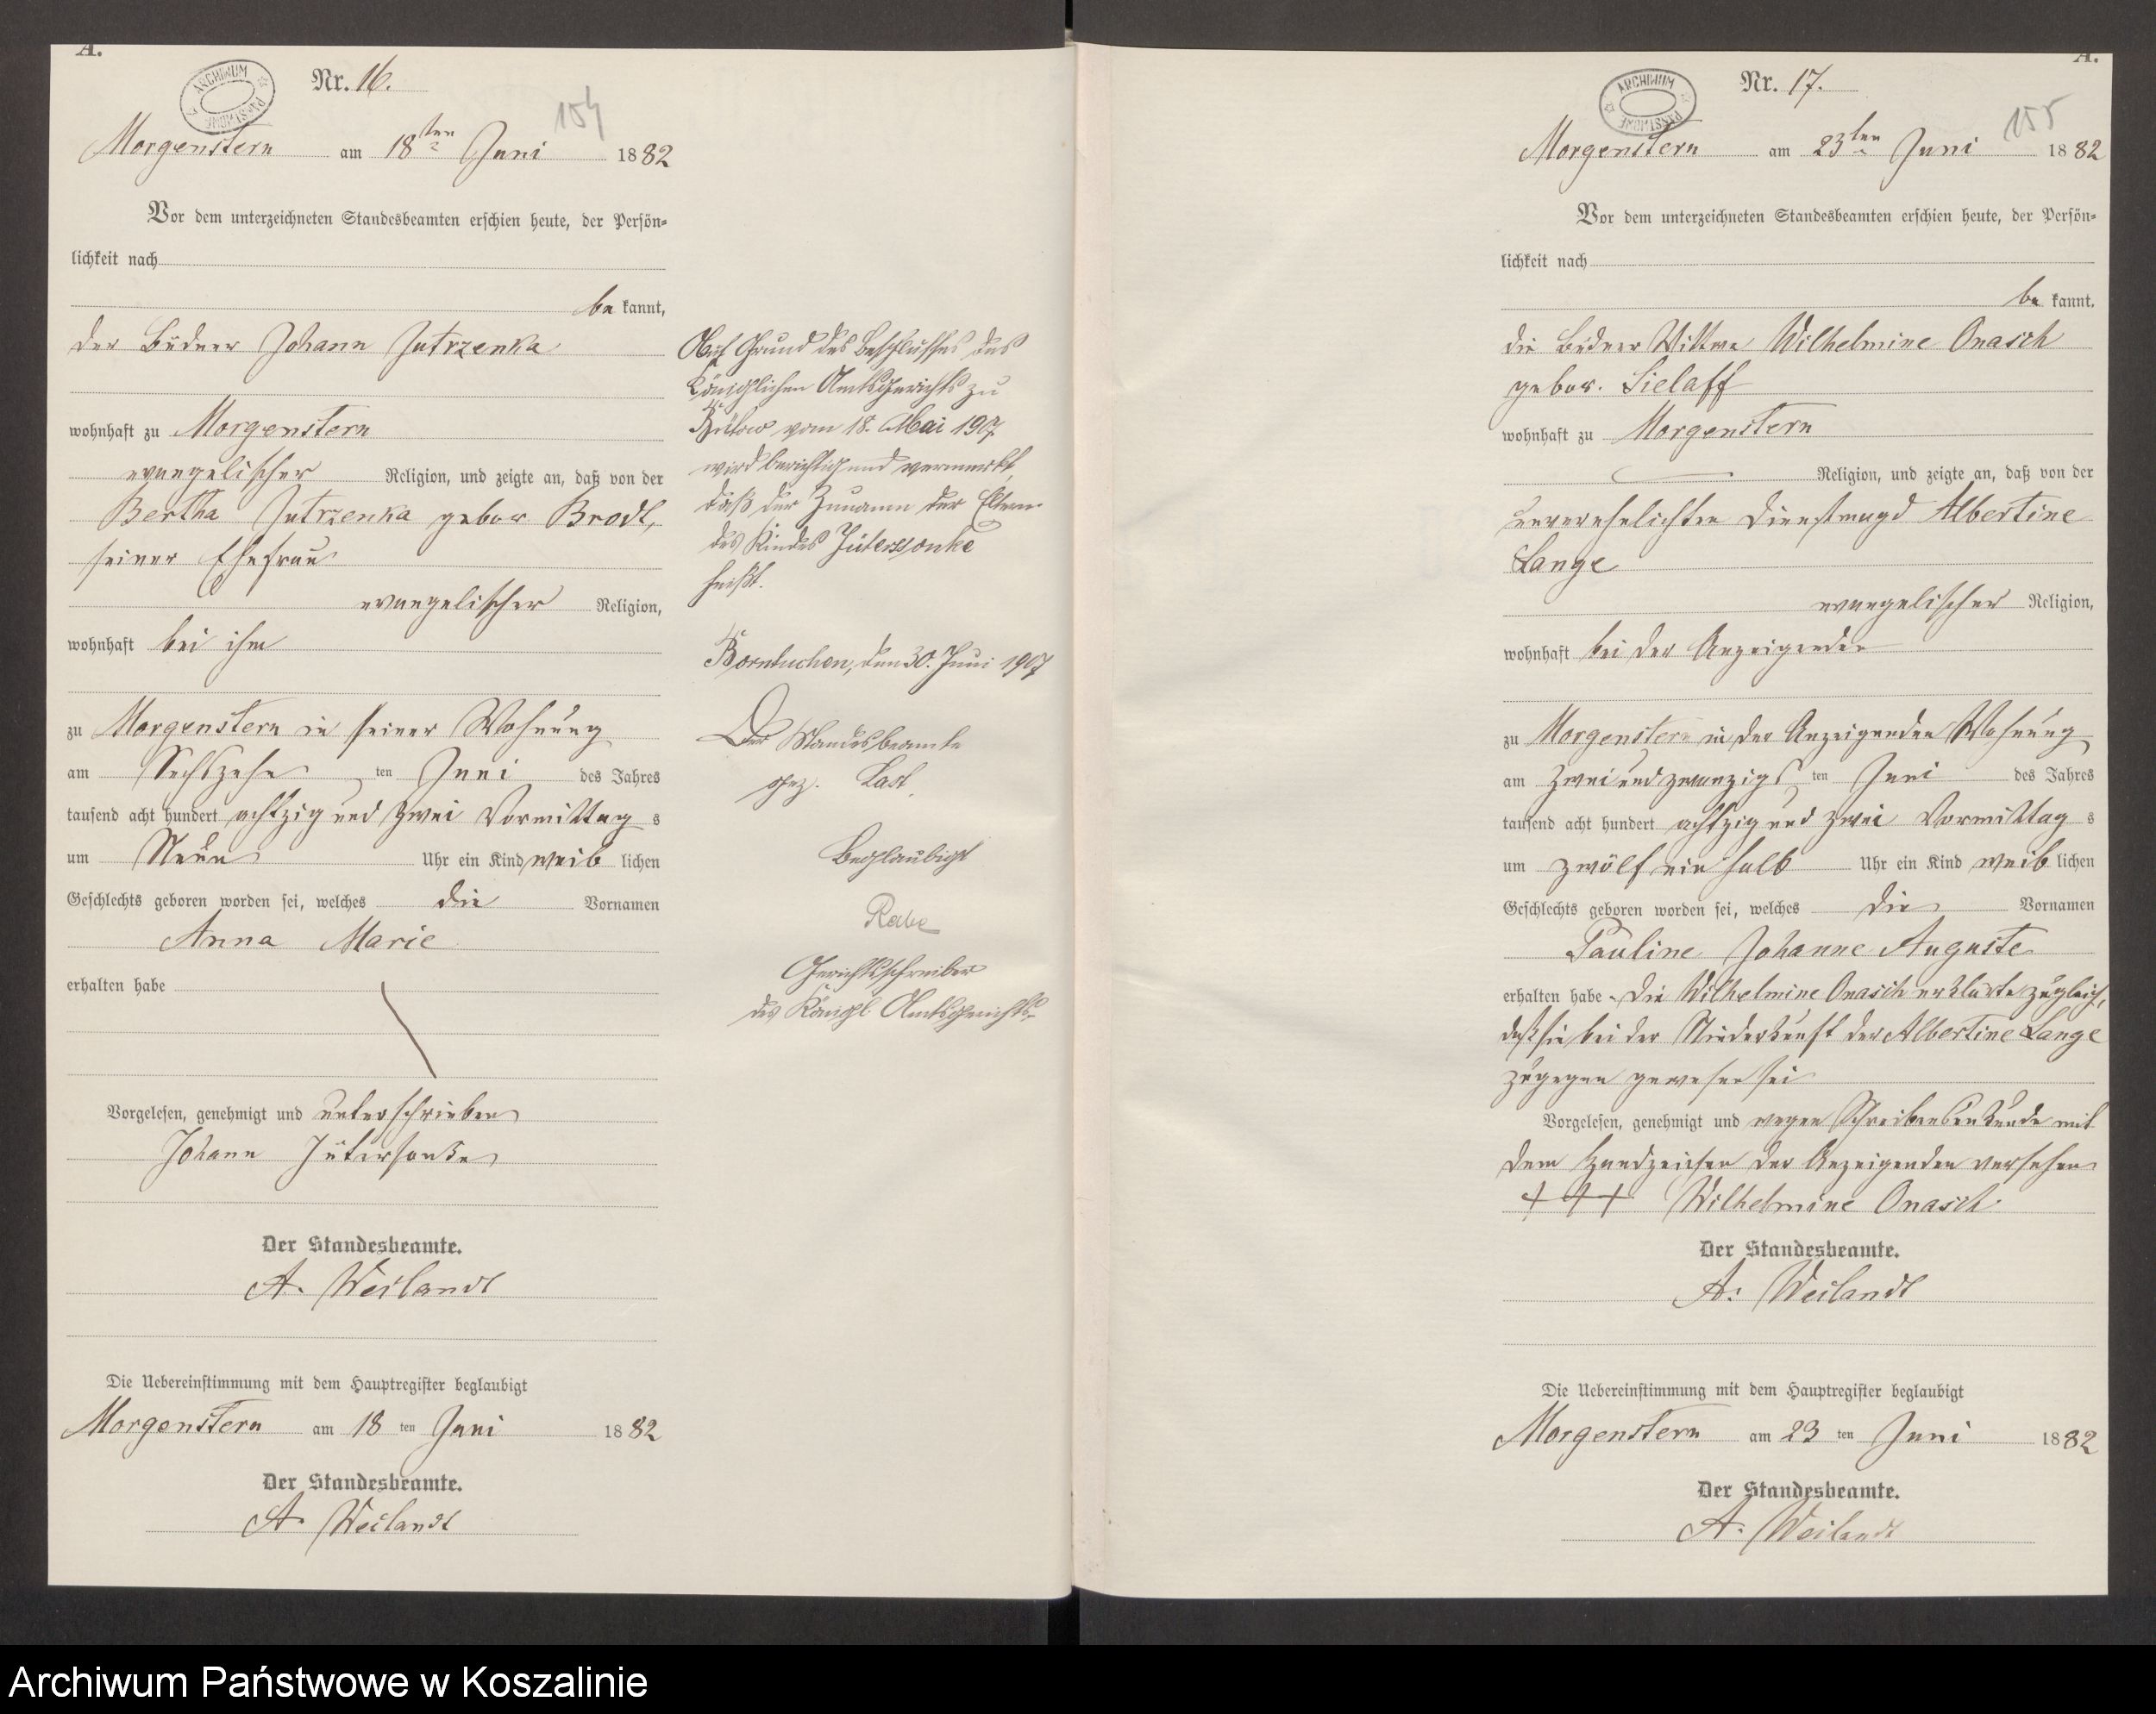 A.
ARCHIWUM PAŃSTWOWE
Nr. 16.
154
Morgenstern am 18ten Juni 1882
Vor dem unterzeichneten Standesbeamten erschien heute, der Persön-
lichkeit nach
be kannt,
der Büdner Johann Jutrzenka
wohnhaft zu Morgenstern
evangelischer Religion, und zeigte an, daß von der
Bertha Jutrzenka gebor Brodt,
seiner Ehefrau
evangelischer Religion,
wohnhaft bei ihm
zu Morgenstern in seiner Wohnung
am Sechszehn ten Juni des Jahres
tausend acht hundert achtzig und zwei Vormittag s
um Neun Uhr ein Kind weib lichen
Geschlechts geboren worden sei, welches die Vornamen
Anna Marie
erhalten habe
Vorgelesen, genehmigt und unterschrieben
Johann Jütersonke
Der Standesbeamte.
A. Weilandt
Die Uebereinstimmung mit dem Hauptregister beglaubigt
Morgenstern am 18 ten Juni 1882
Der Standesbeamte.
A. Weilandt
Auf Grund des Beschlusses des
Königlichen Amtsgerichts zu
Bütow vom 18. Mai 1907
wird berichtigend vermerkt,
daß der Zuname der Eltern
des Kindes Jüterssonke
heißt.
Borntuchen, den 30. Juni 1907
Der Standesbeamte
gez. Last.
Beglaubigt
Rabe
Gerichtsschreiber
des Königl. Amtsgerichts.
A.
ARCHIWUM PAŃSTWOWE
Nr. 17.
155
Morgenstern am 23ten Juni 1882
Vor dem unterzeichneten Standesbeamten erschien heute, der Persön-
lichkeit nach
be kannt,
die Büdner Wittwe Wilhelmine Onasch
gebor. Sielaff
wohnhaft zu Morgenstern
Religion, und zeigte an, daß von der
unverehelichten Dienstmagd Albertine
Lange
evangelischer Religion,
wohnhaft bei der Anzeigenden
zu Morgenstern in der Anzeigenden Wohnung
am zwei und zwanzigs ten Juni des Jahres
tausend acht hundert achtzig und zwei Vormittag s
um zwölf ein halb Uhr ein Kind weib lichen
Geschlechts geboren worden sei, welches die Vornamen
Pauline Johanne Auguste
erhalten habe. Die Wilhelmine Onasch erklärte zugleich,
daß sie bei der Niederkunft der Albertine Lange
zugegen gewesen sei
Vorgelesen, genehmigt und wegen Schreibensunkunde mit
dem Handzeichen der Anzeigenden versehen
+++ Wilhelmine Onasch
Der Standesbeamte.
A. Weilandt
Die Uebereinstimmung mit dem Hauptregister beglaubigt
Morgenstern am 23 ten Juni 1882
Der Standesbeamte.
A. Weilandt
Archiwum Państwowe w Koszalinie